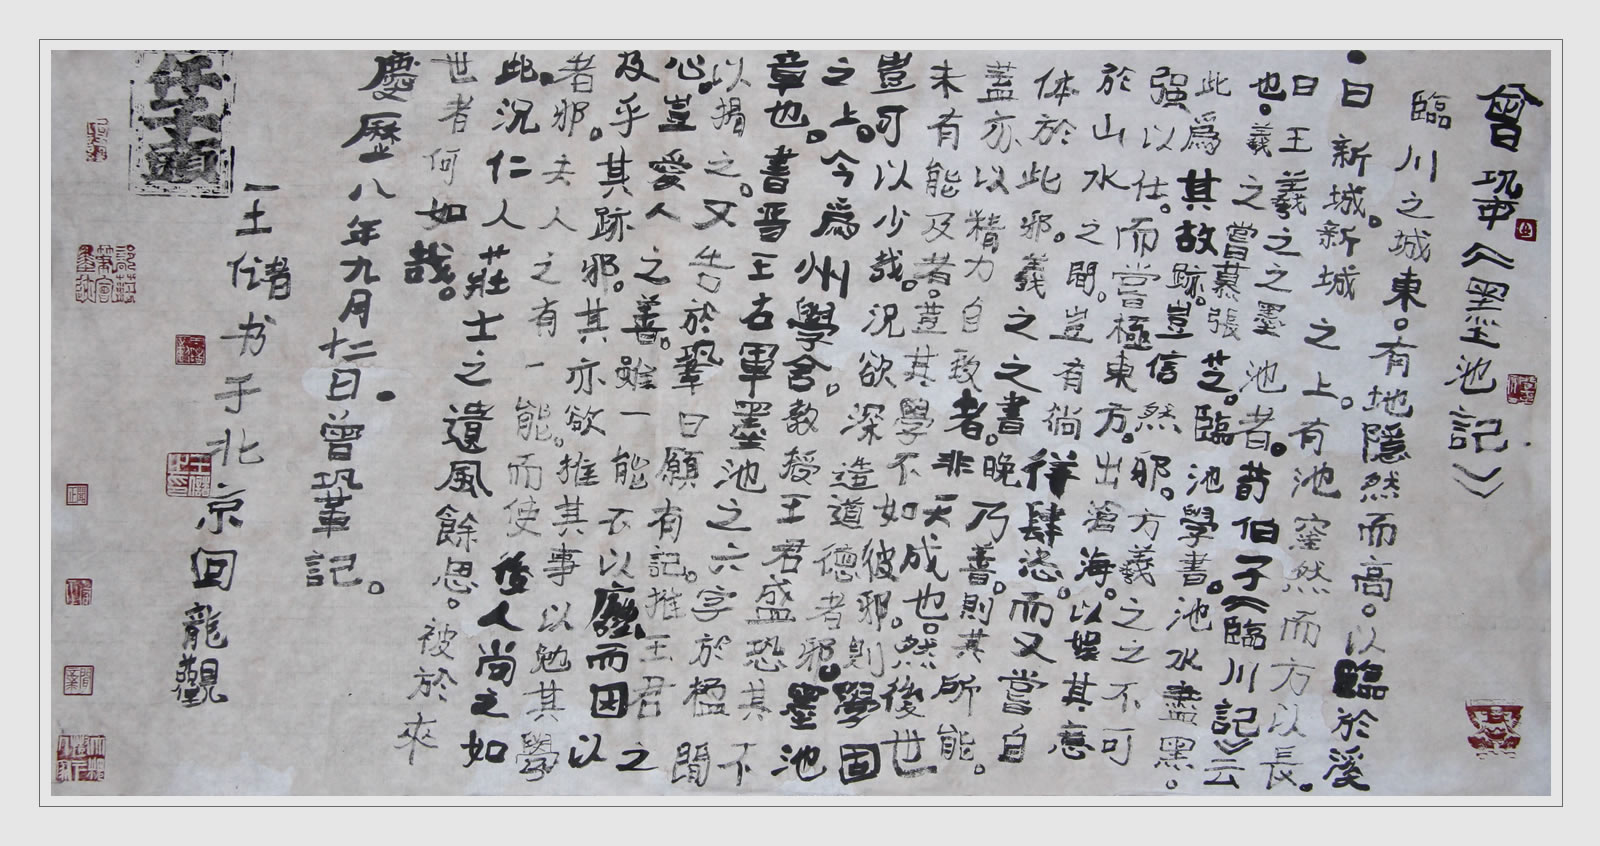 曾鞏《墨池記》
臨川之城東。有地隱然而高。以臨於溪
。曰新城。新城之上。有池窪然而方以長。
曰王羲之之墨池者。荀伯子《臨川記》云
也。羲之嘗慕張芝。臨池學書。池水盡黑。
此爲其故跡。豈信然邪。方羲之之不可
强以仕。而嘗極東方。出滄海。以娛其意
於山水之間。豈有徜徉肆恣。而又嘗自
体於此邪。羲之之書。晚乃善。則其所能。
蓋亦以精力自致者。非天成也。然後世
未有能及者。豈其學不如彼邪。則學固
豈可以少哉。況欲深造道德者邪。墨池
之上。今爲州學舍。教授王君盛恐其不
章也。書晋王右軍墨池之六字於楹間
以揭之。又告於鞏曰願有記。推王君之
心。豈愛人之善。雖一能不以廢而因以
及乎其跡邪。其亦欲推其事以勉其學
者邪。夫人之有一能。而使後人尚之如
此。況仁人莊士之遺風餘思。被於來
世者何如哉。
慶歷八年九月十二日。曾鞏記。
王储书于北京回龍觀